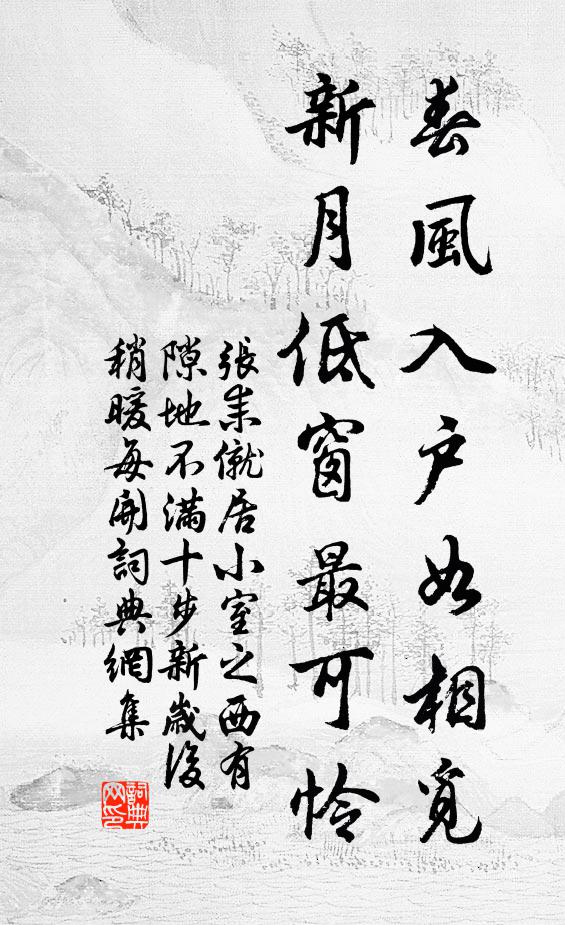 春風入户如相覓
新月低窗最可怜
張耒僦居小室之西有
隙地不滿十步新歲後
稍暖每開詞典網集
詞典网印